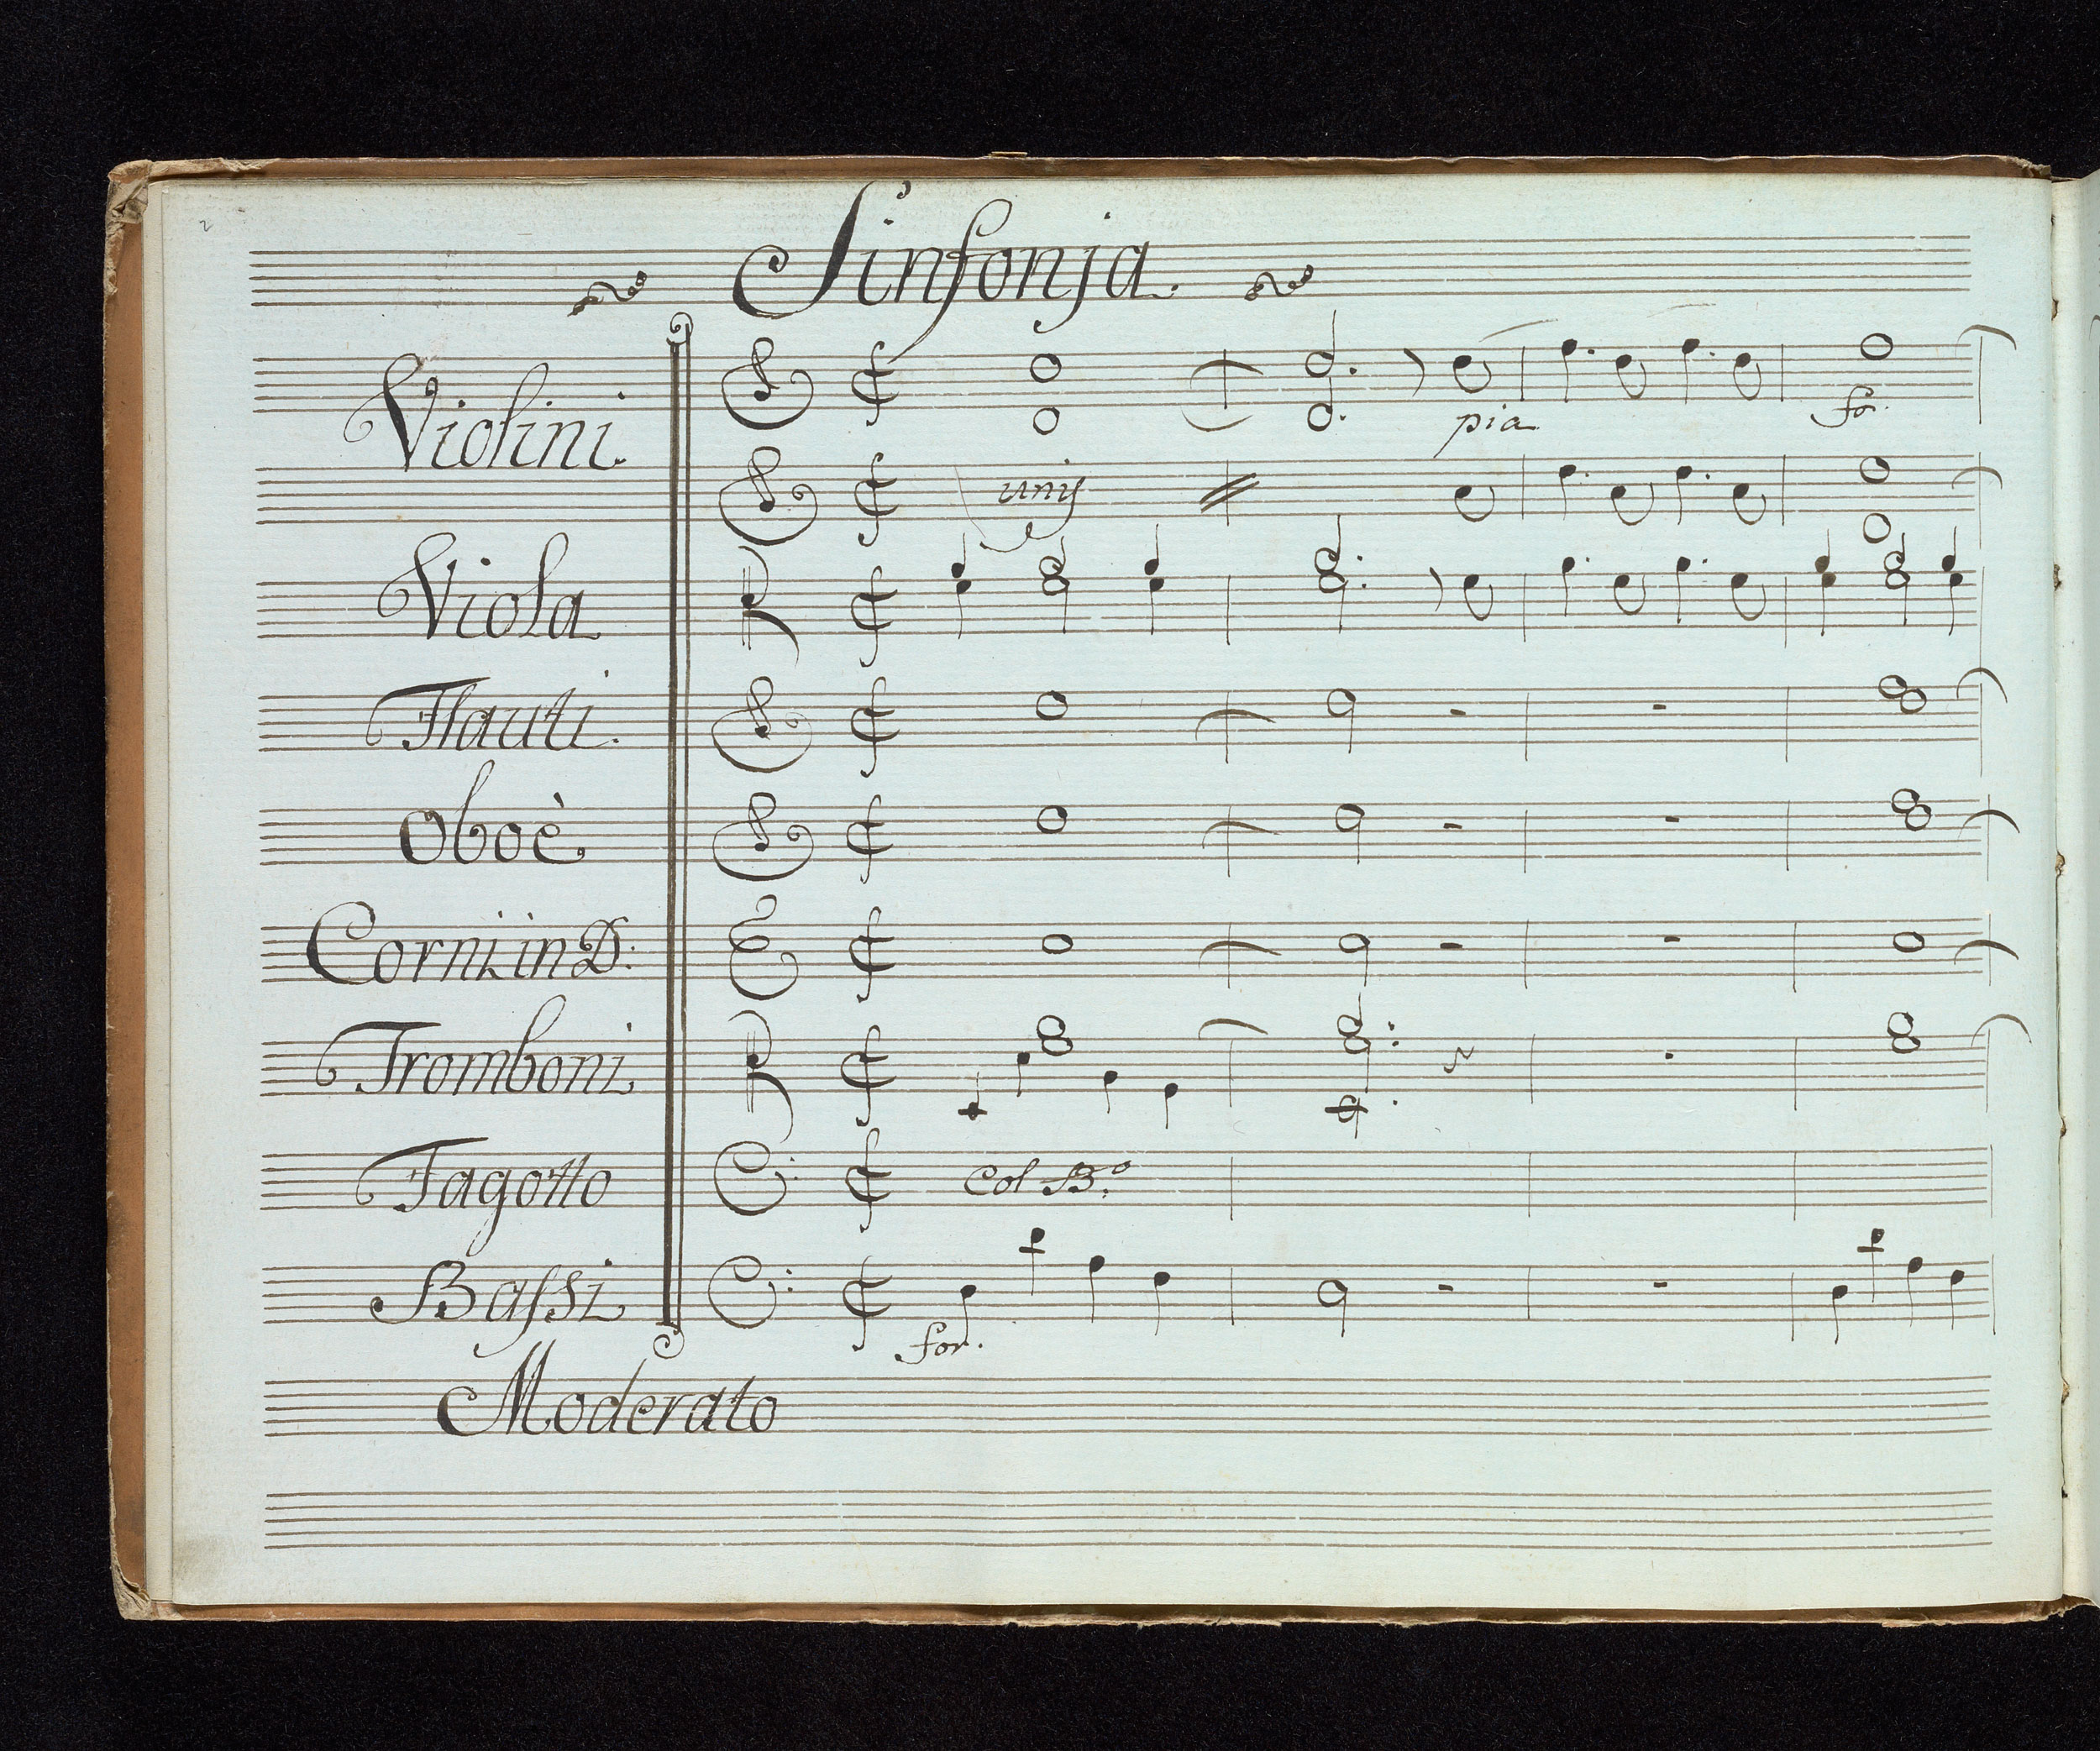 2
Sinfonja.
Violini.
pia
for.
unis
Viola
Flauti.
Oboè
Corni in D:
Tromboni
Fagotto
Col B.o
Bassi
for.
Moderato